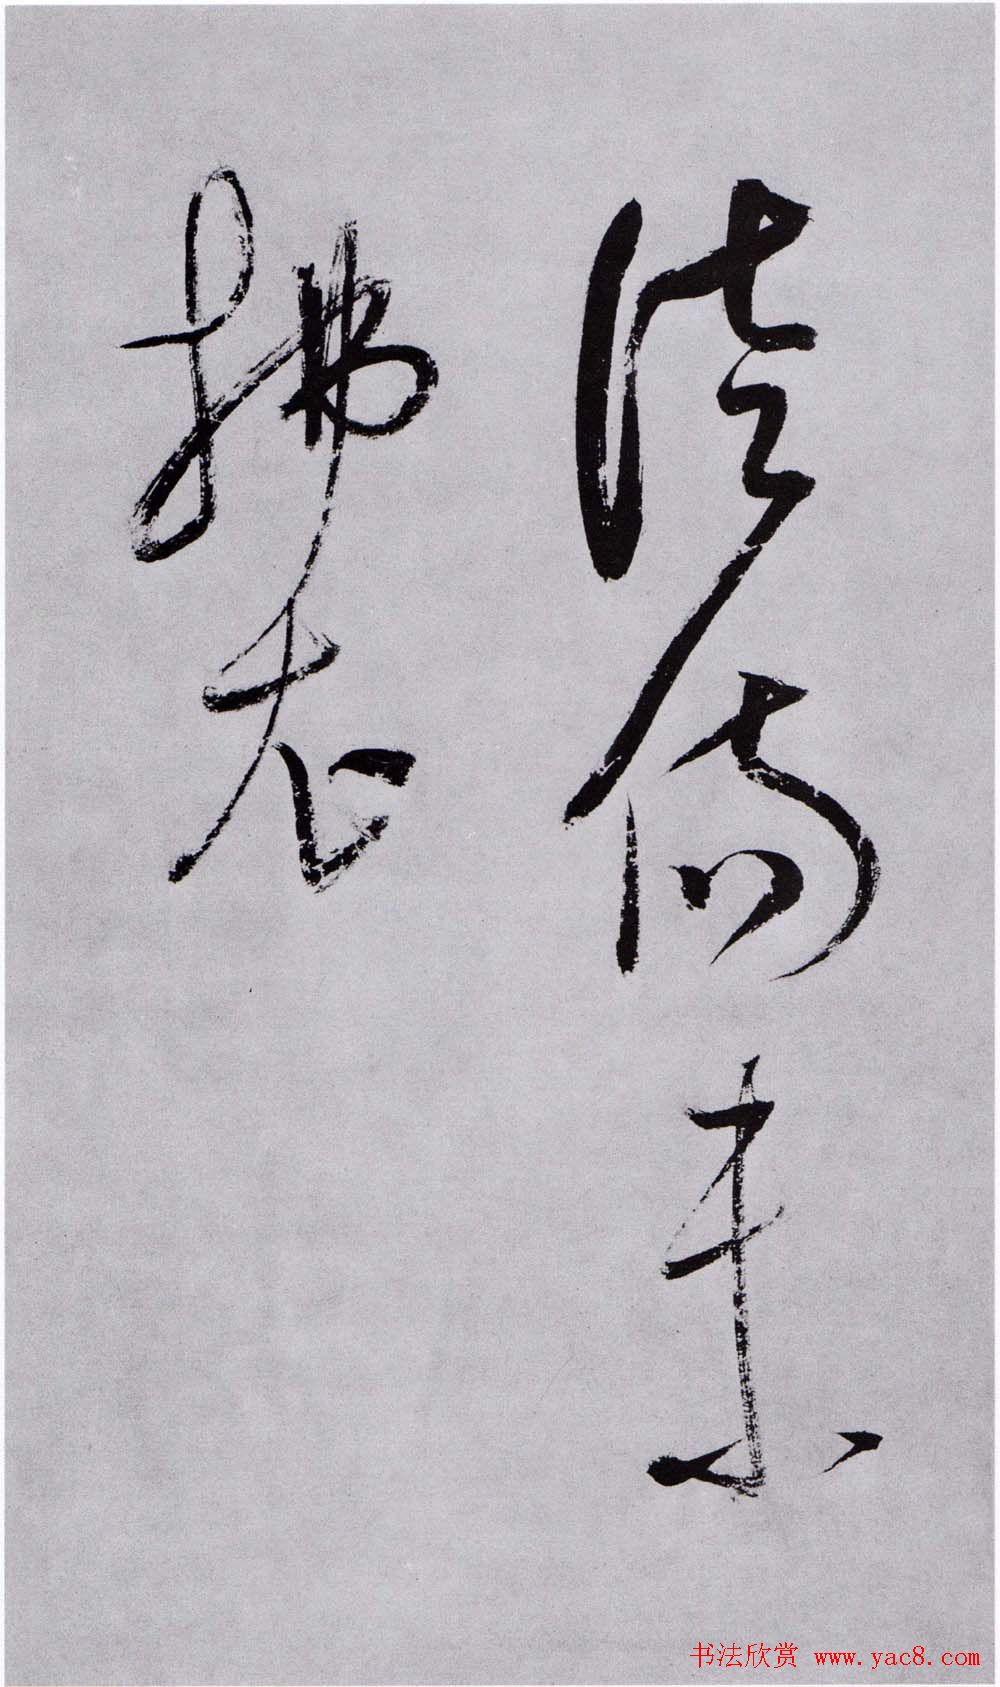 徒傷未
拂衣
书法欣赏 www.yac8.com